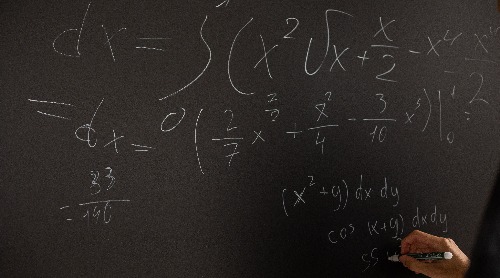 dx = ∫ (x² √x + x/2 - x⁴ - x⁴/2
= dx = 0 (2/7 x^(7/2) + x²/4 - 3/10 x⁵) |₀¹
33/140
(x² + y) dx dy
cos (x+y) dx dy